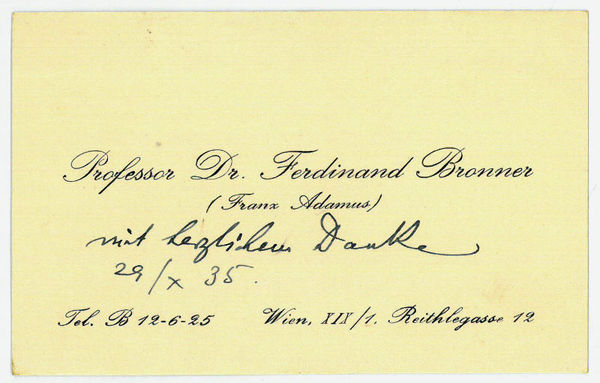 Professor Dr. Ferdinand Bronner
(Franz Adamus)
mit herzlichem Danke
29/X 35.
Tel. B 12-6-25 Wien, XIX/1, Reithlegasse 12